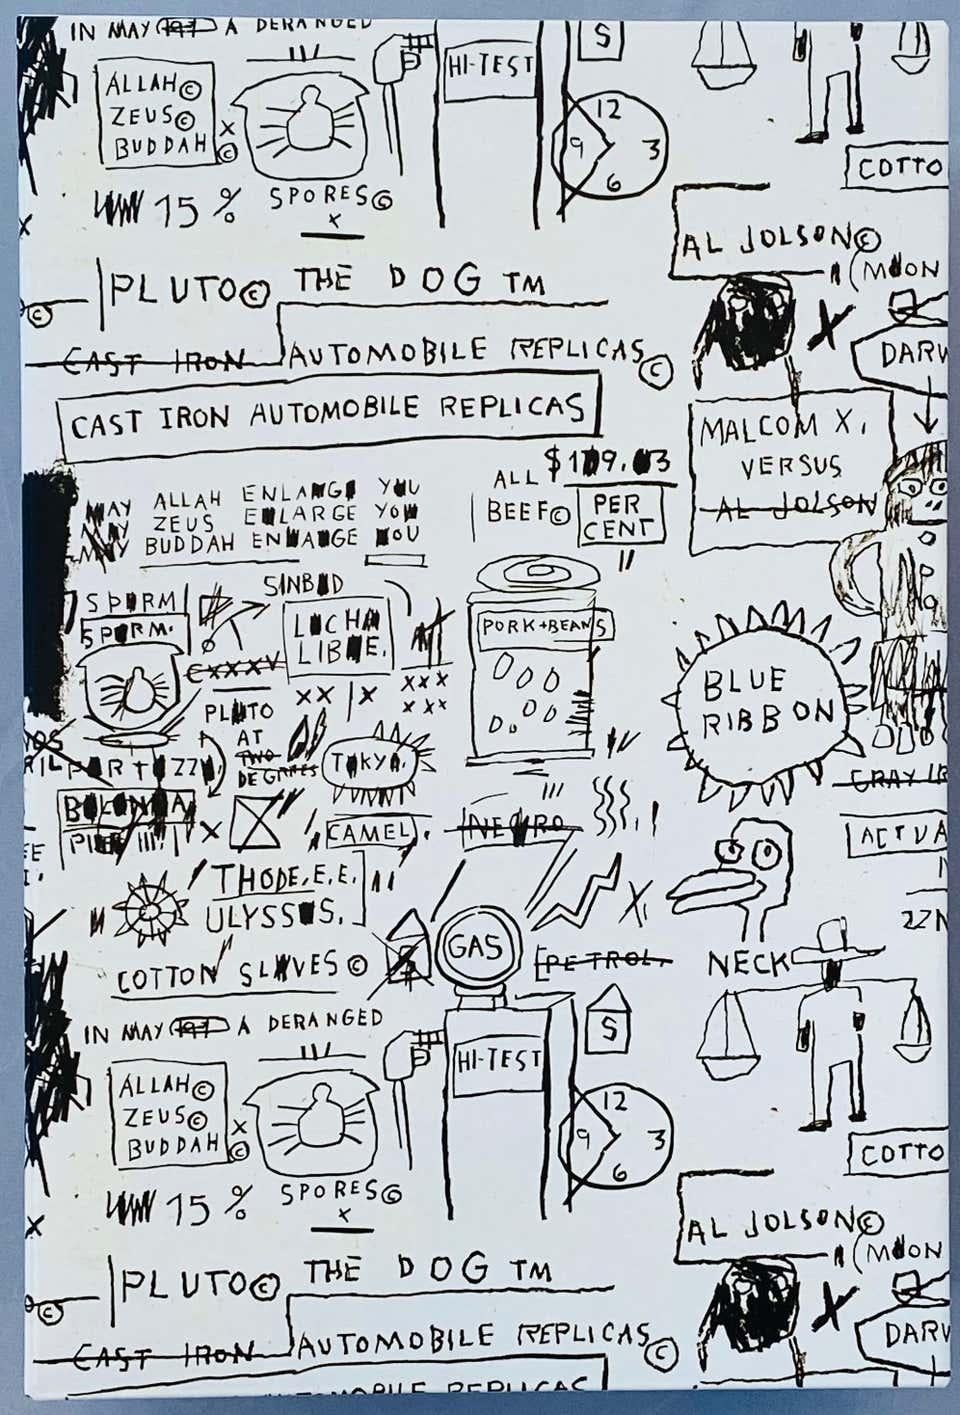 IN MAY A DERANGED
ALLAH©
ZEUS©
BUDDAH
X
©
15%
SPORES©
X
HI-TEST
S
12
9 3
6
COTTO
AL JOLSON©
(MOON
X
DARW
PLUTO© THE DOG TM
©
CAST IRON AUTOMOBILE REPLICAS©
CAST IRON AUTOMOBILE REPLICAS
MALCOM X.
VERSUS
AL JOLSON
ALL
BEEF©
PER
CENT
MAY ALLAH ENLARGE YOU
MAY ZEUS ENLARGE YOU
MAY BUDDAH ENLARGE YOU
SPERM
SPERM.
SINBAD
LUCHA
LIBRE.
CXXXV
XX | X
XXX
XXX
PLUTO
AT
TWO
DEGREES
TOKYO.
PORK+BEANS
BLUE
RIBBON
X
CAMEL.
NEGRO
GRAY IR
ACTUA
THODE.E.E.
ULYSSES.
COTTON SLAVES©
GAS
PETROL.
X.
NECK
22N
IN MAY A DERANGED
ALLAH©
ZEUS©
BUDDAH
X
©
15%
SPORES©
X
HI-TEST
S
12
9 3
6
COTTO
X
AL JOLSON©
(MOON
X
DARW
PLUTO© THE DOG TM
©
CAST IRON AUTOMOBILE REPLICAS©
AUTOMOBILE REPLICAS